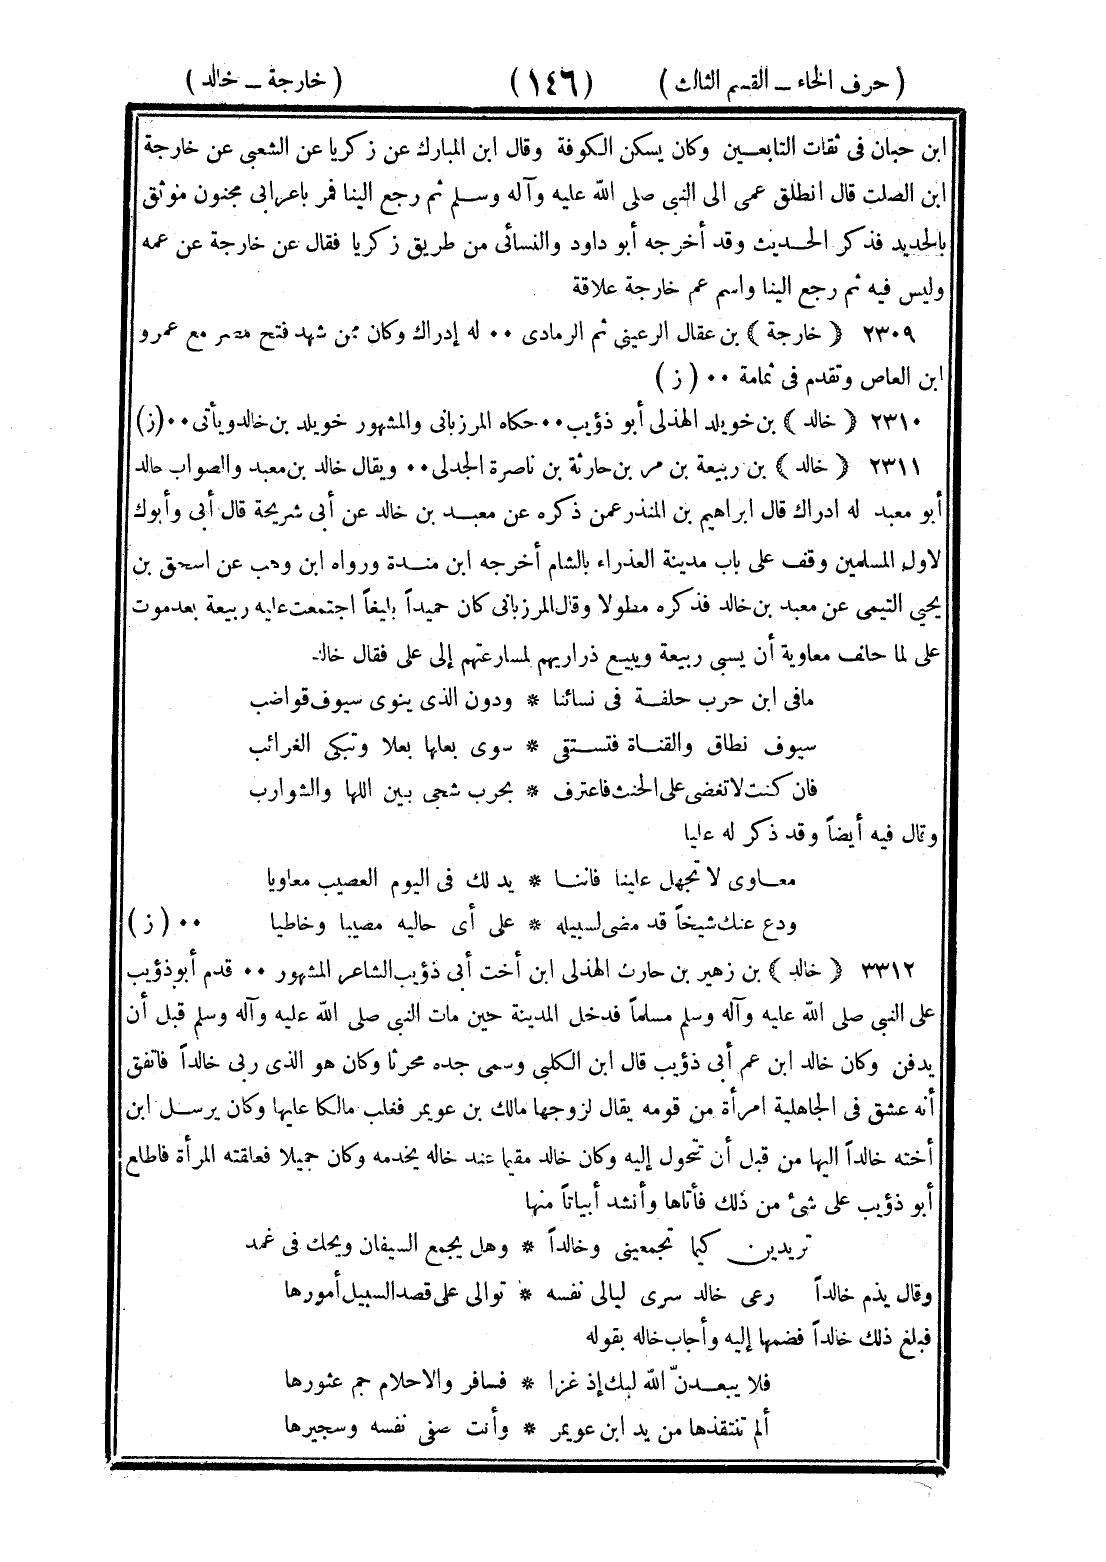 ( حرف الخاء ـ القسم الثالث ) (١٤٦) ( خارجة ـ خالد )
ابن حبان فى ثقات التابعـين وكان يسكن الكوفة وقال ابن المبارك عن زكريا عن الشعبى عن خارجة
ابن الصلت قال انطلق عمى الى النبى صلى الله عليه وآله وسلم ثم رجع الينا فمر باعرابى مجنون موثق
بالحديد فذكر الحديث وقد أخرجه أبو داود والنسائى من طريق زكريا فقال عن خارجة عن عمه
وليس فيه ثم رجع الينا واسم عم خارجة علاقة
٢٣٠٩ ﴿ خارجة ﴾ بن عقال الرعينى ثم الرمادى ٠٠ له إدراك وكان ممن شهد فتح مصر مع عمرو
ابن العاص وتقدم فى ثمامة ٠٠ ( ز )
٢٣١٠ ﴿ خالد ﴾ بن خويلد الهذلى أبو ذؤيب ٠٠ حكاه المرزبانى والمشهور خويلد بن خالد ويأتى ٠٠ (ز)
٢٣١١ ﴿ خالد ﴾ بن ربيعة بن مر بن حارثة بن ناصرة الجدلى ٠٠ ويقال خالد بن معبد والصواب خالد
أبو معبد له ادراك قال ابراهيم بن المنذر عمن ذكره عن معبد بن خالد عن أبى شريحة قال أبى وأبوك
لاول المسلمين وقف على باب مدينة العذراء بالشام أخرجه ابن منـدة ورواه ابن وهب عن اسحق بن
يحيى التيمى عن معبد بن خالد فذكره مطولا وقال المرزبانى كان حميداً بليغاً اجتمعت عليه ربيعة بعد موت
على لما حلف معاوية أن يسبى ربيعة ويبيع ذراريهم لمسارعتهم إلى على فقال خالد
مافى ابن حرب حلفـة فى نسائنا * ودون الذى ينوى سيوف قواضب
سيوف نطاق والقنـاة فتستقى * سوى بعلها بعلا وتبكى الغرائب
فان كنت لا تغضى على الحنث فاعترف * بحرب شجى بـين اللها والشوارب
وقال فيه أيضاً وقد ذكر له عليا
معـاوى لا تجهل علينا فاننـا * يد لك فى اليوم العصيب معاويا
ودع عنك شيخاً قد مضى لسبيله * على أى حاليه مصيبا وخاطيا ٠٠ ( ز )
٣٣١٢ ﴿ خالد ﴾ بن زهير بن حارث الهذلى ابن أخت أبى ذؤيب الشاعر المشهور ٠٠ قدم أبو ذؤيب
على النبى صلى الله عليه وآله وسلم مسلماً فدخل المدينة حين مات النبى صلى الله عليه وآله وسلم قبل أن
يدفن وكان خالد ابن عم أبى ذؤيب قال ابن الكلبى وسمى جده محرثا وكان هو الذى ربى خالداً فاتفق
أنه عشق فى الجاهلية امرأة من قومه يقال لزوجها مالك بن عويمر فغلب مالكا عليها وكان يرسـل ابن
أخته خالداً اليها من قبل أن تتحول إليه وكان خالد مقيما عند خاله يخدمه وكان جميلا فعلقته المرأة فاطلع
أبو ذؤيب على شئ من ذلك فأتاها وأنشد أبياتاً منها
تريدين كيما تجمعينى وخالداً * وهل يجمع السيفان ويحك فى غمد
وقال يذم خالداً رعى خالد سرى ليالى نفسه * توالى على قصد السبيل أمورها
فبلغ ذلك خالداً فضمها إليه وأجاب خاله بقوله
فلا يبعـدنّ الله لبك إذ غزا * فسافر والاحلام جم عثورها
ألم تنتقذها من يد ابن عويمر * وأنت صفى نفسه وسجيرها